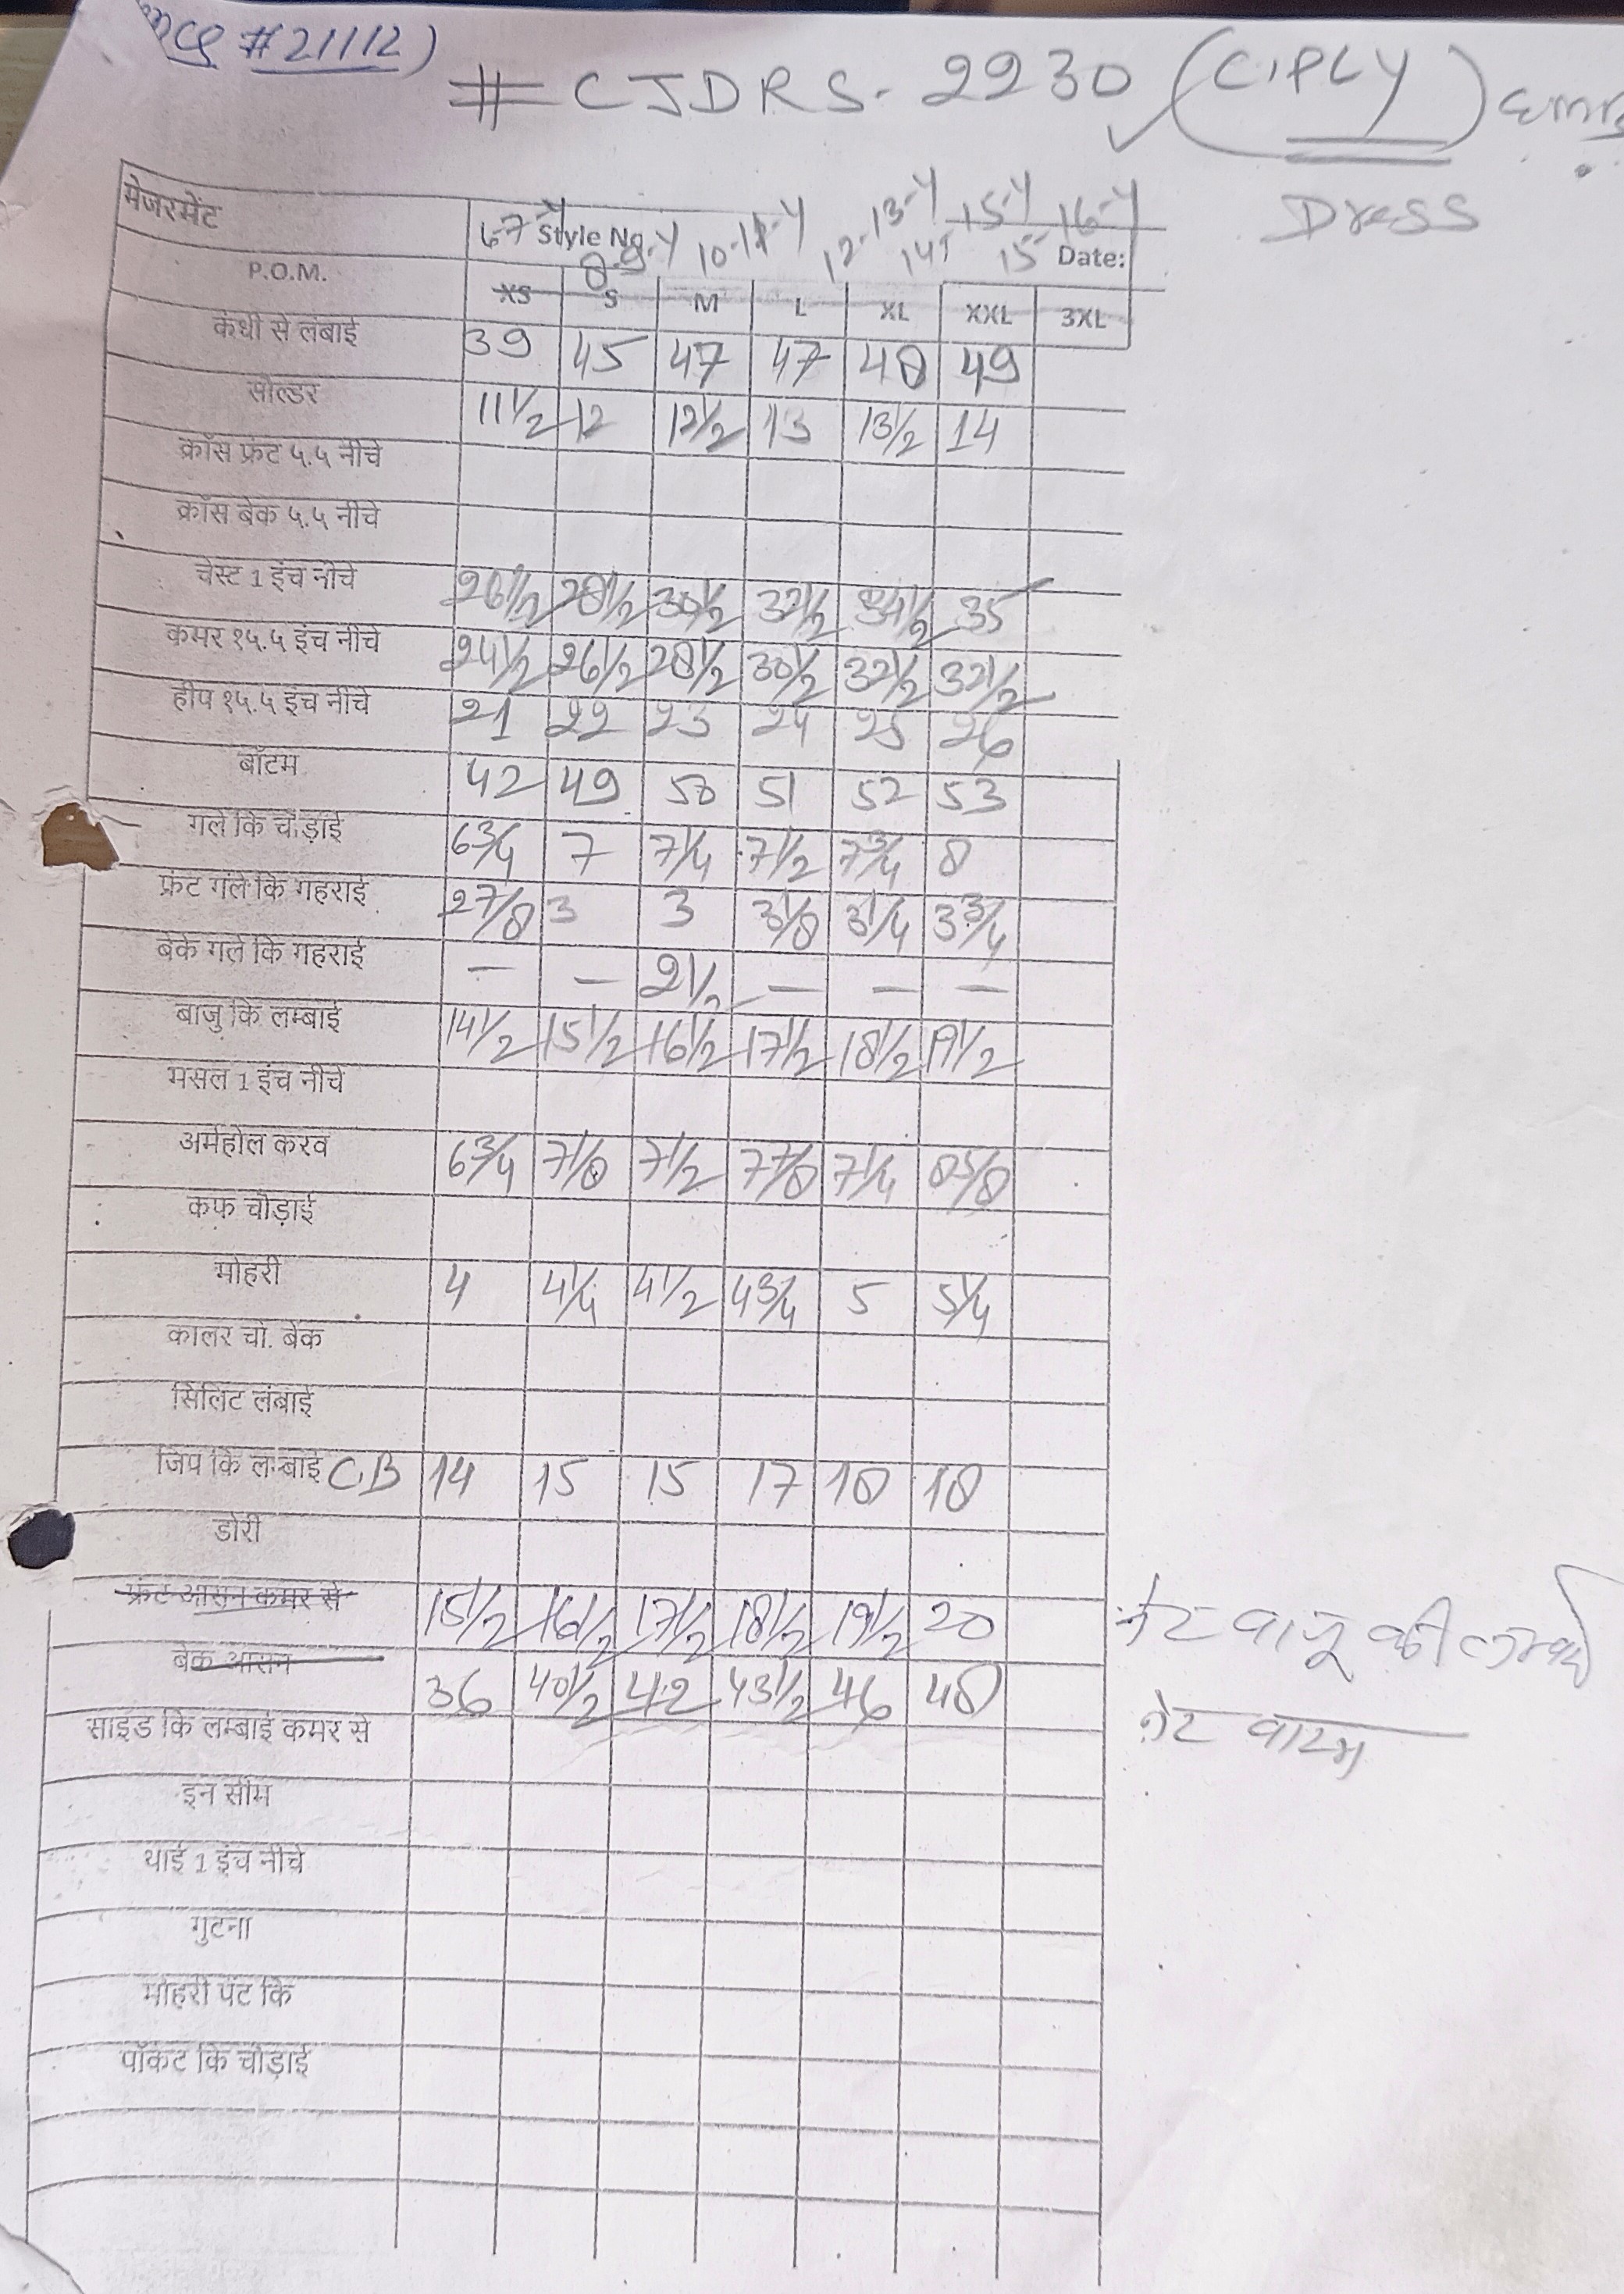 #21112)
# CJDRS-2230 (C.PLY)
Dress
मेजरमेंट
6-7-Y 8-9-Y 10-11-Y 12-13-Y 14-15-Y 15-16-Y
Style No Date:
P.O.M. XS S M L XL XXL 3XL
कंधी से लंबाई 39 45 47 47 48 49
सोल्डर 11 1/2 12 12 1/2 13 13 1/2 14
क्रॉस फ्रंट ५.५ नीचे
क्रॉस बेक ५.५ नीचे
चेस्ट 1 इंच नीचे 26 1/2 28 1/2 30 1/2 32 1/2 34 1/2 35
कमर १५.५ इंच नीचे 24 1/2 26 1/2 28 1/2 30 1/2 32 1/2 32 1/2
हीप १५.५ इंच नीचे 21 22 23 24 25 26
बॉटम 42 49 50 51 52 53
गले कि चौड़ाई 6 3/4 7 7 1/4 7 1/2 7 3/4 8
फ्रंट गले कि गहराई 2 7/8 3 3 3 1/8 3 1/4 3 3/4
बेके गले कि गहराई — — 2 1/2 — — —
बाजु कि लम्बाई 14 1/2 15 1/2 16 1/2 17 1/2 18 1/2 19 1/2
मसल 1 इंच नीचे
अर्महोल करव 6 3/4 7 1/8 7 1/2 7 7/8 7 1/4 8 5/8
कफ चौड़ाई
मोहरी 4 4 1/4 4 1/2 4 3/4 5 5 1/4
कालर चौ. बेक
सिलिट लंबाई
जिप कि लम्बाई C.B 14 15 15 17 18 18
डोरी
फ्रंट आसन कमर से 15 1/2 16 1/2 17 1/2 18 1/2 19 1/2 20 नेट बाजू की लम्बाई
बेक आसन 36 40 1/2 42 43 1/2 46 48 नेट बाटम
साइड कि लम्बाई कमर से
इन सीम
थाई 1 इंच नीचे
गुटना
मोहरी पेंट कि
पॉकेट कि चौड़ाई